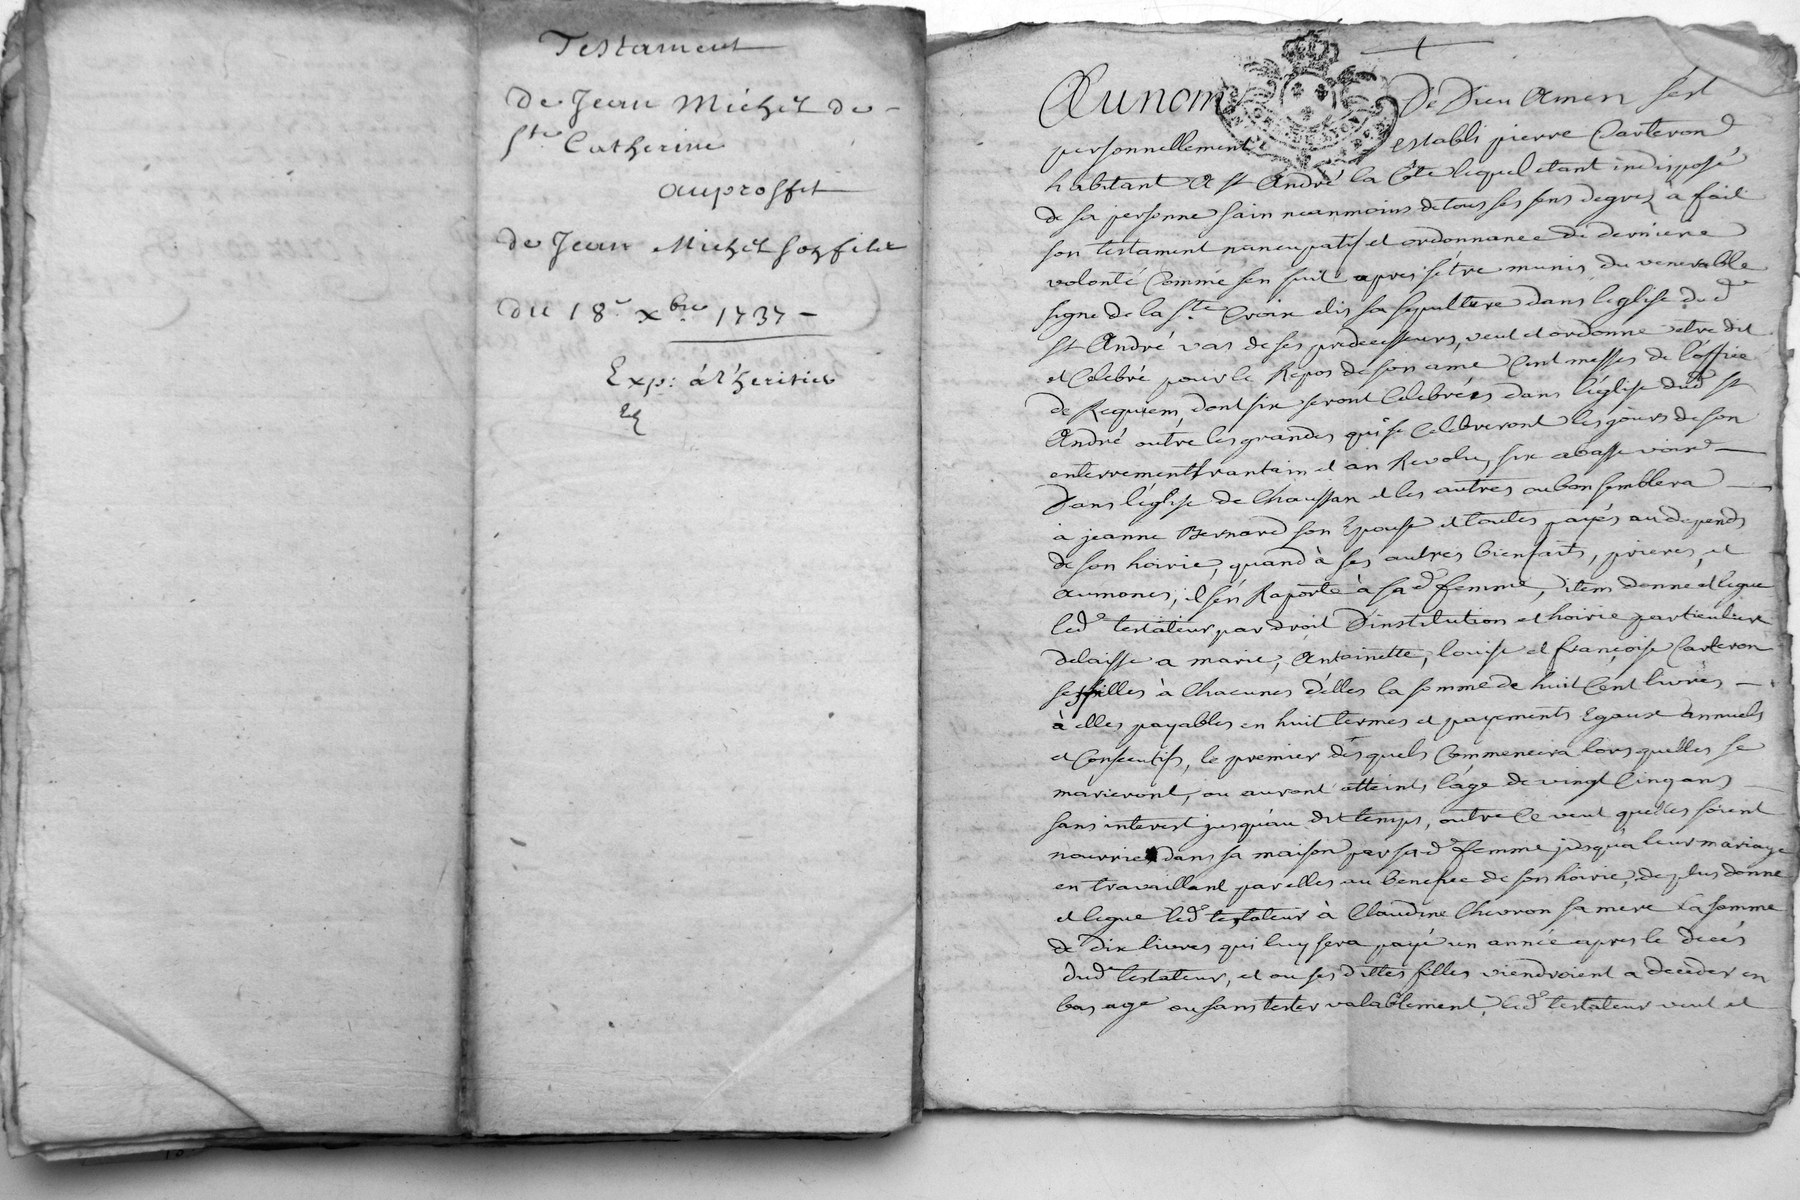 Testament
de Jean Michel de
Ste Catherine
au proffit
de Jean Michel son fils
du 18e xbre 1737
Exp: á l'heritier
+
Au nom De Dieu Amen sest
personnellement establi pierre Carteron
habitant A st André la Côte lequel etant indisposé
de sa personne sain neanmoins de tous ses sens de grez a fait
son testament nuncupatif et ordonnance de derniere
volonté Comme sen suit apres s'être munis du venerable
signe de la Ste Croix elis sa sepulture dans l'eglise dud
st André vas de ses predecesseurs, veut et ordonne etre dit
et Celebré pour le Repos de son ame Cent messes de l'office
de Requiem, dont six seront Celebrées dans l'église dud st
André outre les grandes qui se Celebreront les jours de son
enterrement trantain et an Revolu, six a basse voix
Dans l'église de Chaussan et les autres ou bon semblera
a jeanne Bernard son Epouse et toutes payés au depends
de son hoirie, quand à ses autres bienfaits, prieres, et
aumones, il s'en Raporte à sad femme, item donne et legue
led testateur par droit D'institution et hoirie particuliere
delaisse a marie, Antoinette, louise et françoise Carteron
ses filles à Chacunes d'elles la somme de huit Cent livres
à elles payables en huit termes et payements Egaux annuels
et Consecutifs, le premier desquels Commencera lors quelles se
marieront, ou auront atteints l'age de vingt Cinq ans
sans interest jusqu'au dit temps, outre Ce veut quelles soient
nourries dans sa maison par sad femme jusqu'à leur mariage
en travaillant par elles au benefice de son hoirie, de plus donne
et legue led testateur à Claudine Chevron sa mere la somme
de dix livres qui luy sera payé un année apres le decés
dud testateur, et ou ses dittes filles viendroient a deceder en
bas age ou sans tester valablement, led testateur veut et